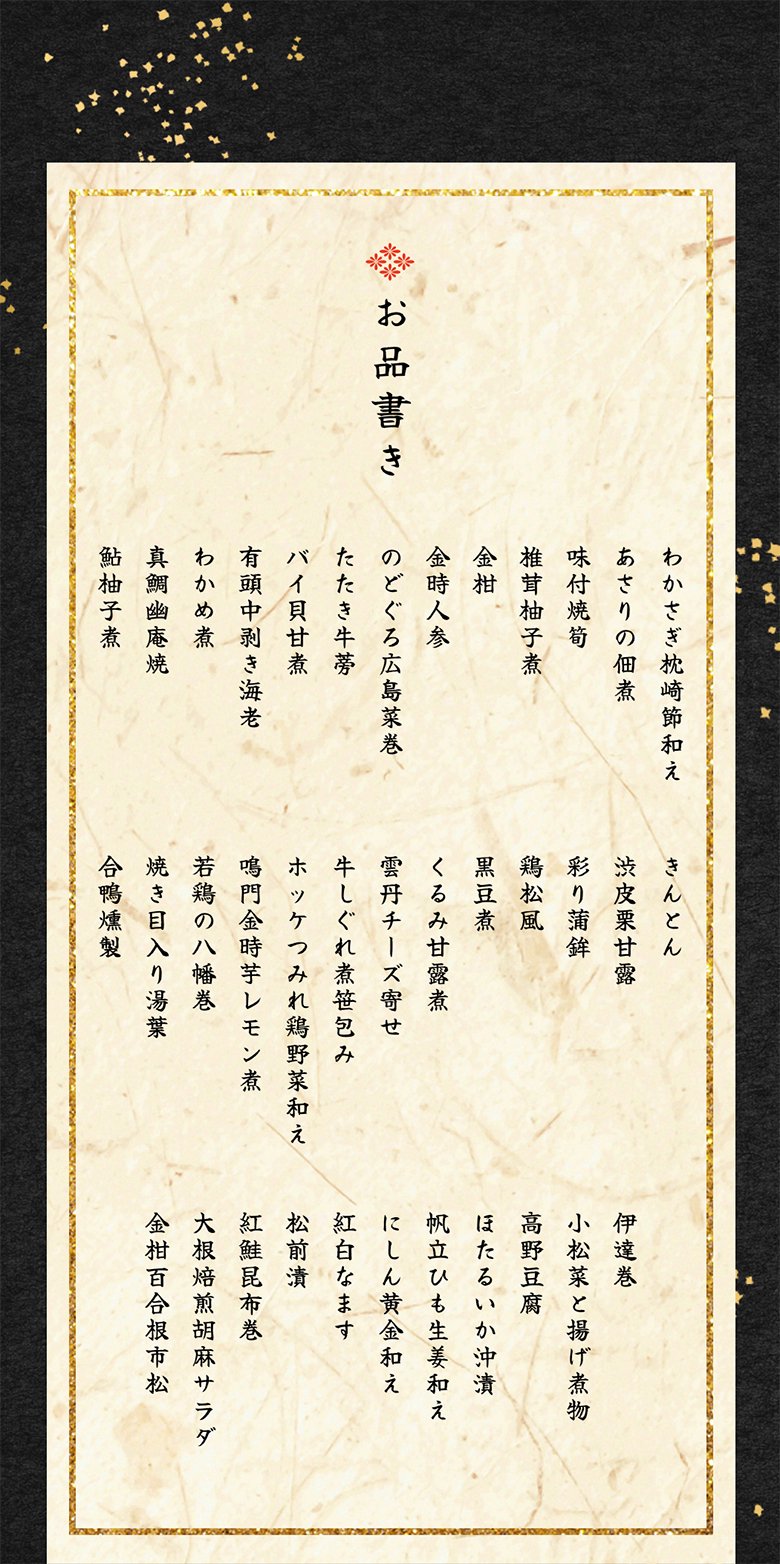 お品書き
わかさぎ枕崎節和え
あさりの佃煮
味付焼筍
椎茸柚子煮
金柑
金時人参
のどぐろ広島菜巻
たたき牛蒡
バイ貝甘煮
有頭中剥き海老
わかめ煮
真鯛幽庵焼
鮎柚子煮
きんとん
渋皮栗甘露
彩り蒲鉾
鶏松風
黒豆煮
くるみ甘露煮
雲丹チーズ寄せ
牛しぐれ煮笹包み
ホッケつみれ鶏野菜和え
鳴門金時芋レモン煮
若鶏の八幡巻
焼き目入り湯葉
合鴨燻製
伊達巻
小松菜と揚げ煮物
高野豆腐
ほたるいか沖漬
帆立ひも生姜和え
にしん黄金和え
紅白なます
松前漬
紅鮭昆布巻
大根焙煎胡麻サラダ
金柑百合根市松